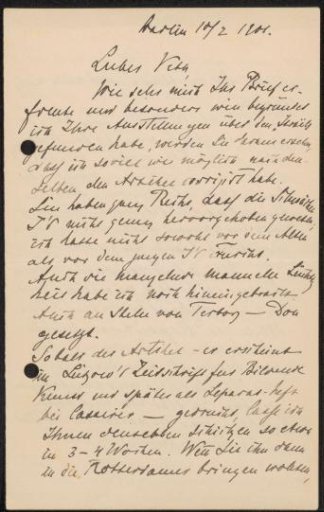 Berlin 10/2 1901.
Lieber Veth,
Wie sehr mich Ihr Brief er-
freute und besonders wie begründet
ich Ihre Ausstellungen über den
gefunden habe, werden Sie daraus ersehen,
daß ich so viel wie möglich nach den-
selben den Artikel corrigirt habe.
Sie haben ganz Recht, daß die
nicht genug hervorgehoben
ich hatte nicht sowohl vor dem Alten
als vor dem jungen Is
Auch die mangelnde manuelle
habe ich noch hineingebracht
Auch an Stelle von Terborg — Dou
gesetzt.
Sobald der Artikel – er erscheint
in Lützow's Zeitschrift für Bildende
Kunst und später als Separat-Heft
bei Cassirer — gedruckt, lasse ich
Ihnen denselben schicken so etwa
in 3–4 Wochen. Wenn Sie ihn dann
in die Rotterdamer bringen wollen,